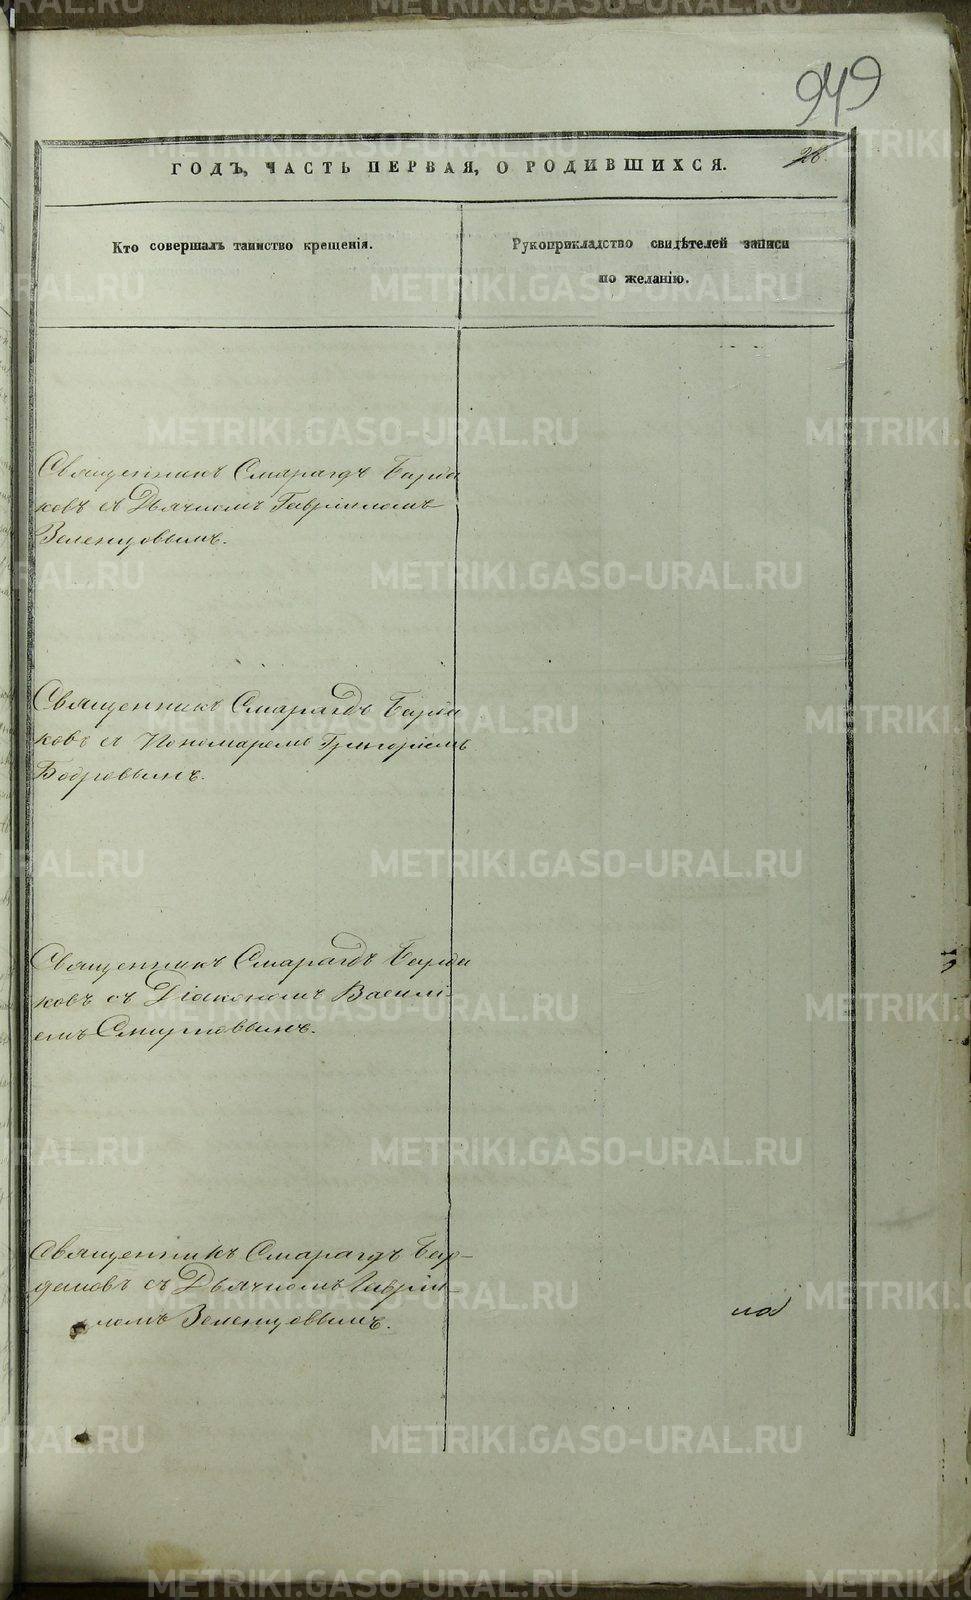 949
28
ГОДЪ, ЧАСТЬ ПЕРВАЯ, О РОДИВШИХСЯ.
Кто совершалъ таинство крещенія.
Рукоприкладство свидѣтелей записи
по желанію.
Священникъ Смарагдъ
ковъ съ Дьячкомъ Гавріиломъ
Зеленцовымъ.
Священникъ Смарагдъ
ковъ съ Пономаремъ Григоріемъ
Бобровымъ.
Священникъ Смарагдъ
ковъ съ Діакономъ Василі
емъ Смирновымъ.
Священникъ Смарагдъ
съ Дьячкомъ Гаврі
ломъ Зеленцовымъ.
METRIKI.GASO-URAL.RU